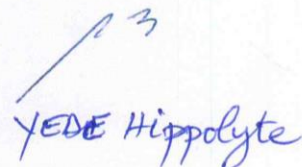 3
YEDE Hippolyte